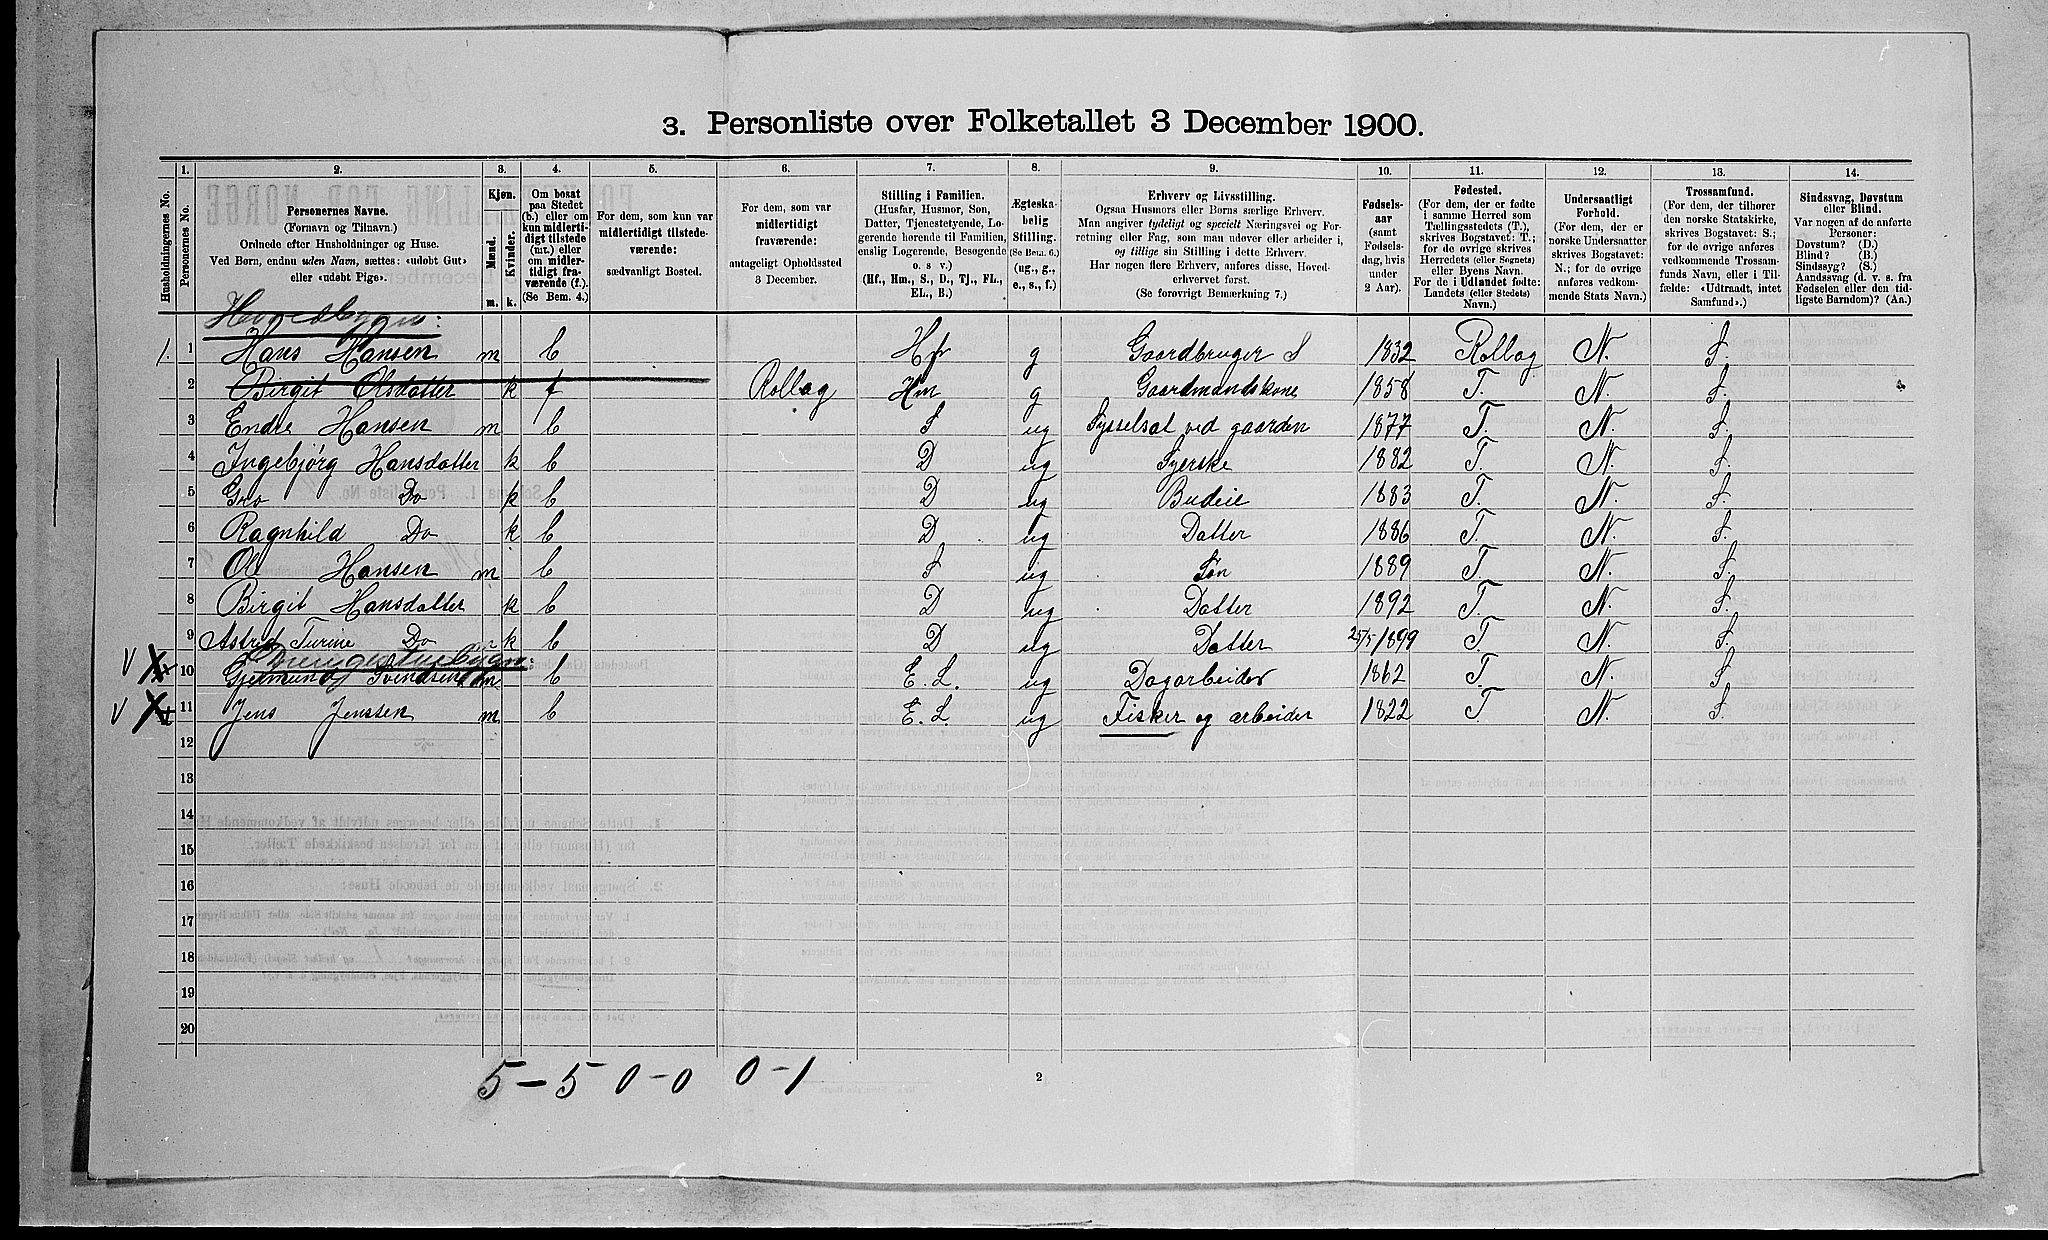 3. Personliste over Folketallet 3 December 1900.
Husholdningernes No.
1. Personernes No.
2. Personernes Navne. (Fornavn og Tilnavn.) Ordnede efter Husholdninger og Huse. Ved Børn, endnu uden Navn, sættes: «udøbt Gut» eller «udøbt Pige».
3. Kjøn. Mænd. m. Kvinder. k.
4. Om bosat paa Stedet (b.) eller om kun midlertidigt tilstede (mt.) eller om midlertidigt fraværende (f.) (Se Bem. 4.)
5. For dem, som kun var midlertidigt tilstedeværende: sædvanligt Bosted.
6. For dem, som var midlertidigt fraværende: antageligt Opholdssted 3 December.
7. Stilling i Familien. (Husfar, Husmor, Søn, Datter, Tjenestetyende, Logerende hørende til Familien, enslig Logerende, Besøgende o. s v.) (Hf., Hm., S., D., Tj., FL., EL., B.)
8. Ægteskabelig Stilling. (Se Bem. 6.) (ug., g., e., s., f.)
9. Erhverv og Livsstilling. Ogsaa Husmors eller Børns særlige Erhverv. Man angiver tydeligt og specielt Næringsvei og Forretning eller Fag, som man udøver eller arbeider i, og tillige sin Stilling i dette Erhverv. Har nogen flere Erhverv, anføres disse, Hovederhvervet først. (Se forøvrigt Bemærkning 7.)
10. Fødselsaar (samt Fødselsdag, hvis under 2 Aar).
11. Fødested. (For dem, der er fødte i samme Herred som Tællingsstedets (T.), skrives Bogstavet: T.; for de øvrige skrives Herredets (eller Sognets) eller Byens Navn. For de i Udlandet fødte: Landets (eller Stedets) Navn.)
12. Undersaatligt Forhold. (For dem, der er norske Undersaatter skrives Bogstavet: N.; for de øvrige anføres vedkommende Stats Navn.)
13. Trossamfund. (For dem, der tilhører den norske Statskirke, skrives Bogstavet: S.; for de øvrige anføres vedkommende Trossamfunds Navn, eller i Tilfælde: «Udtraadt, intet Samfund».)
14. Sindssvag, Døvstum eller Blind. Var nogen af de anførte Personer: Døvstum? (D.) Blind? (B.) Sindssyg? (S.) Aandssvag (d. v. s. fra Fødselen eller den tidligste Barndom)? (Aa.)
1. 1 Hans Hansen m b Hf g Gaardbruger S 1832 Rollag N. S.
2 Birgit Olsdatter k f Rollag Hm g Gaardmandskone 1858 T. N. S.
3 Endre Hansen m b S ug Sysselsat ved gaarden 1877 T. N. S.
4 Ingebjørg Hansdatter k b D ug Syerske 1882 T. N. S.
5 Gro Do k b D ug Budeie 1883 T. N. S.
6 Ragnhild Do k b D ug Datter 1886 T. N. S.
7 Ole Hansen m b S ug Søn 1889 T. N. S.
8 Birgit Hansdatter k b D ug Datter 1892 T. N. S.
9 Astrid Turine Do k b D ug Datter 25/5 1899 T. N. S.
Drengestuebygn:
V X 10 Gjermund Svendsen m b E. L. ug Dagarbeider 1862 T. N. S.
V X 11 Jens Jenssen m b E. L. ug Fisker og arbeider 1822 T N. S.
12
13
14
15
16
17
18
19
20
5-5 0-0 0-1
2